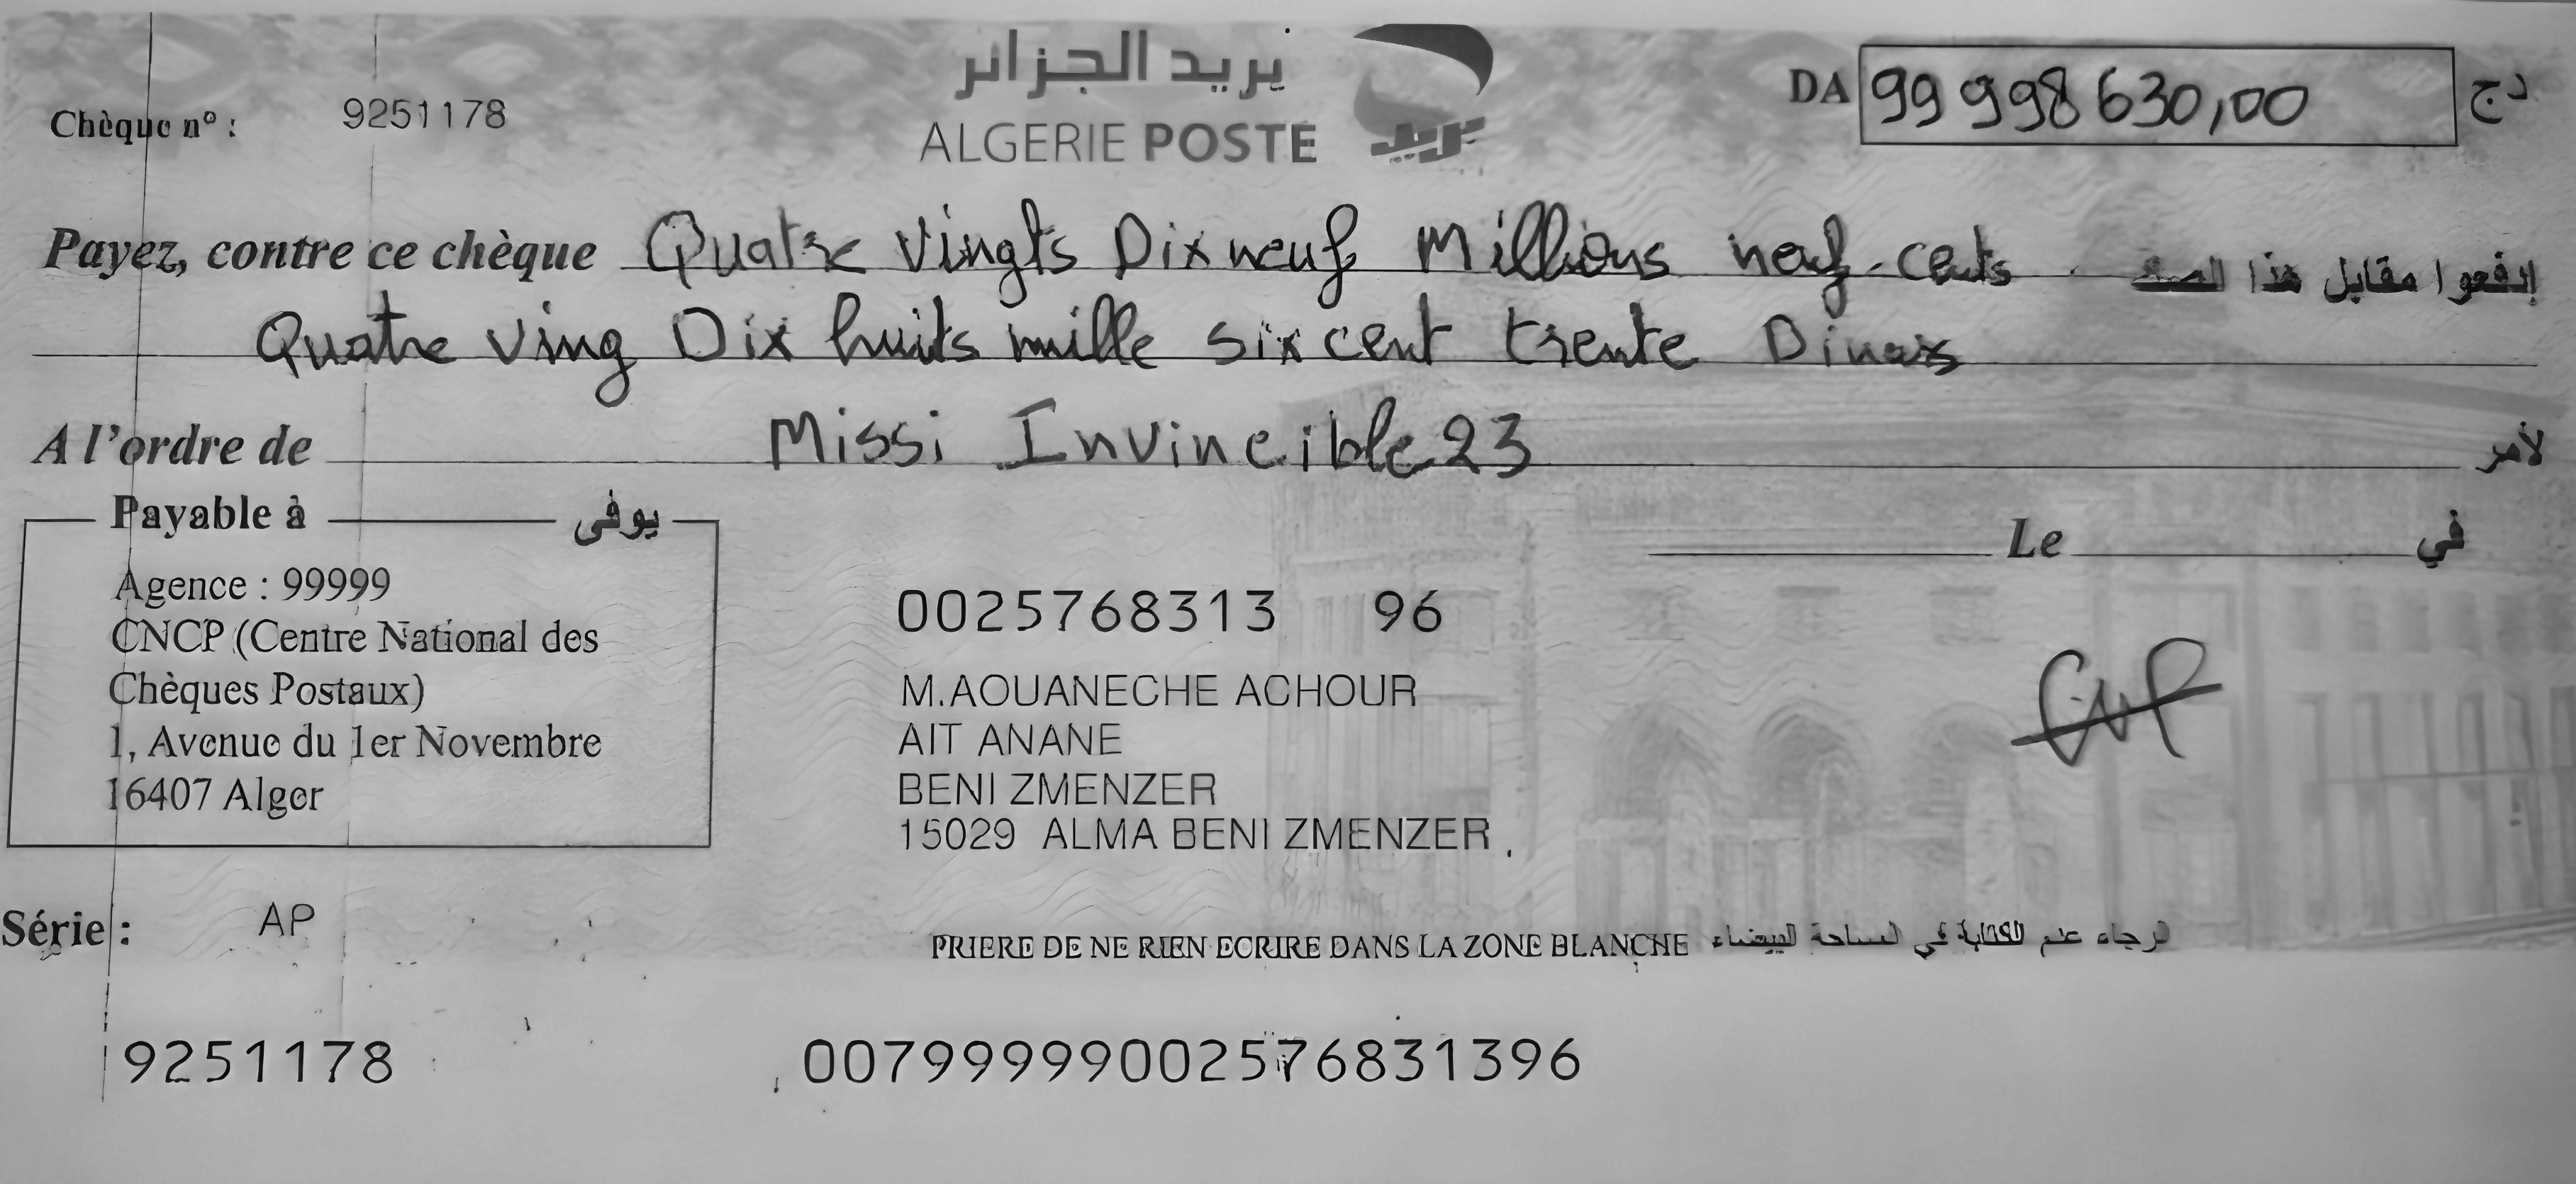 بريد الجزائر
ALGERIE POSTE
بريد
Chèque n° : 9251178
DA 99 998 630,00 دج
Payez, contre ce chèque Quatre Vingts Dix neuf Millions neuf cents إدفعوا مقابل هذا الصك
Quatre Ving Dix huits mille six cent trente Dinars
A l'ordre de Missi Invincible23 لأمر
Payable à يوفى
Le في
Agence : 99999
CNCP (Centre National des
Chèques Postaux)
1, Avenue du 1er Novembre
16407 Alger
0025768313 96
M.AOUANECHE ACHOUR
AIT ANANE
BENI ZMENZER
15029 ALMA BENI ZMENZER
Série : AP
PRIERE DE NE RIEN ECRIRE DANS LA ZONE BLANCHE الرجاء عدم الكتابة في المساحة البيضاء
9251178 00799999002576831396